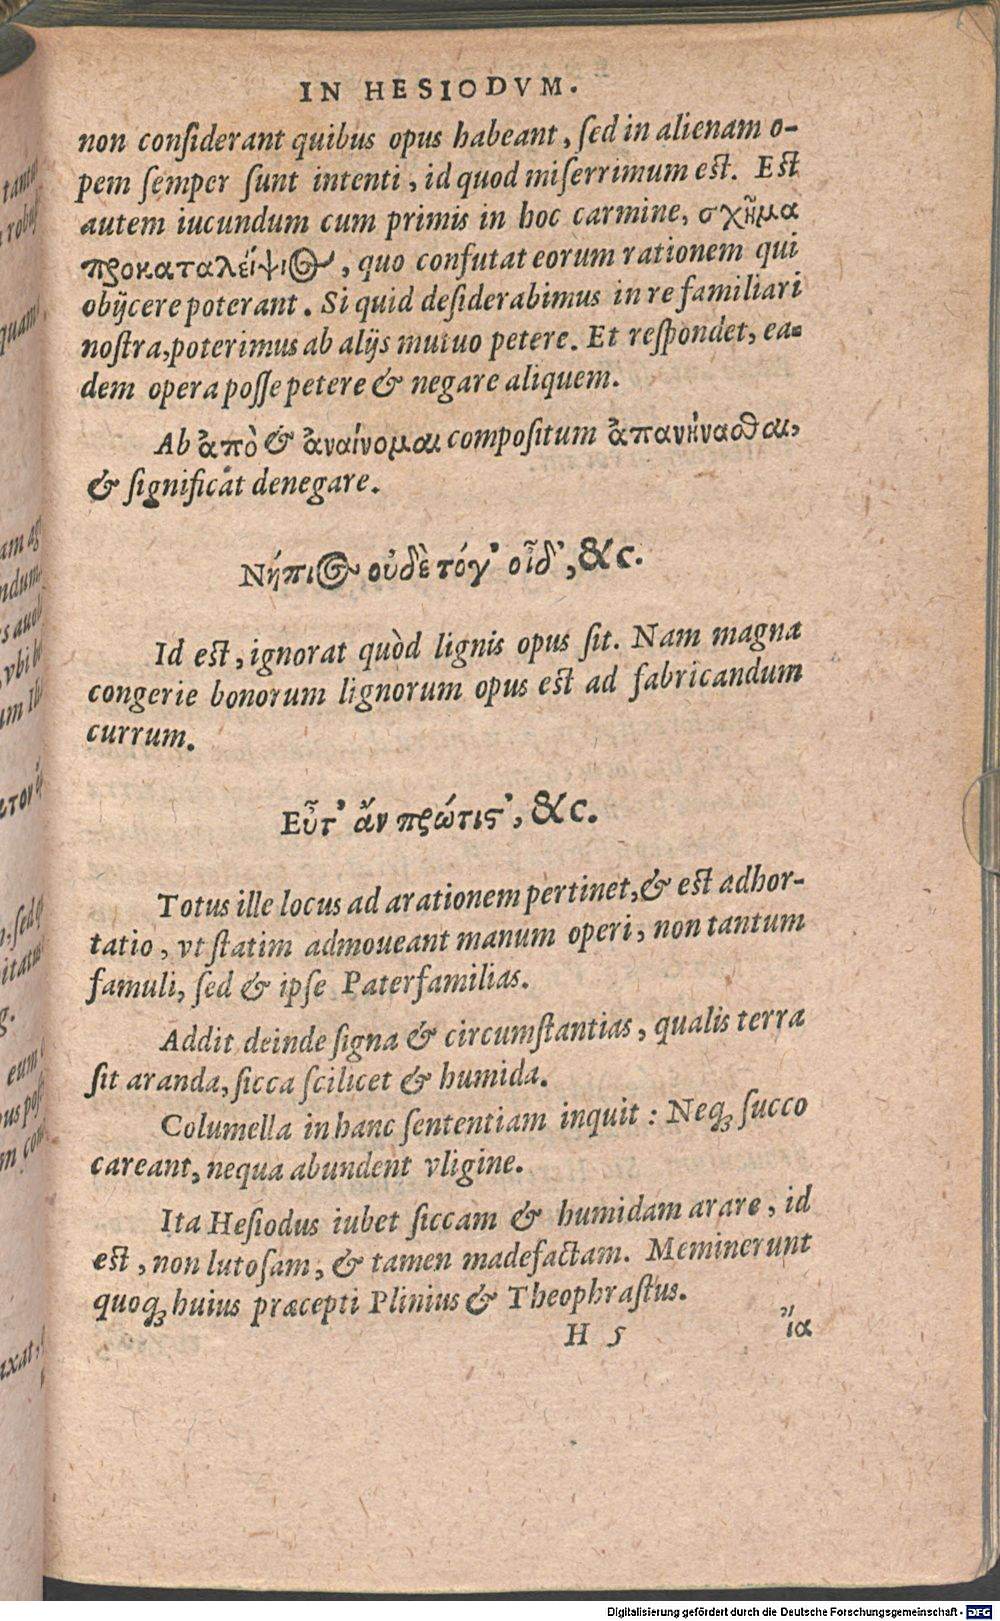 IN HESIODVM.
non conſiderant quibus opus habeant, ſed in alienam o-
pem ſemper ſunt intenti, id quod miſerrimum est. Est
autem iucundum cum primis in hoc carmine, σχῆμα
προκαταλείψιος, quo confutat eorum rationem qui
obijcere poterant. Si quid deſiderabimus in re familiari
noſtra, poterimus ab alijs mutuo petere. Et reſpondet, ea-
dem opera poſſe petere & negare aliquem.
Ab ἀπὸ & ἀναίνομαι compoſitum ἀπανήνασθαι,
& ſignificat denegare.
Νήπιος οὐδὲ τόγ' οἶδ', &c.
Id est, ignorat quòd lignis opus ſit. Nam magna
congerie bonorum lignorum opus est ad fabricandum
currum.
Εὖτ' ἄν πρώτις', &c.
Totus ille locus ad arationem pertinet, & est adhor-
tatio, vt ſtatim admoueant manum operi, non tantum
famuli, ſed & ipſe Paterfamilias.
Addit deinde ſigna & circumſtantias, qualis terra
ſit aranda, ſicca ſcilicet & humida.
Columella in hanc ſententiam inquit: Neq; ſucco
careant, nequa abundent vligine.
Ita Heſiodus iubet ſiccam & humidam arare, id
est, non lutoſam, & tamen madefactam. Meminerunt
quoq; huius præcepti Plinius & Theophraſtus.
H 5 ἵα
Digitalisierung gefördert durch die Deutsche Forschungsgemeinschaft - DFG